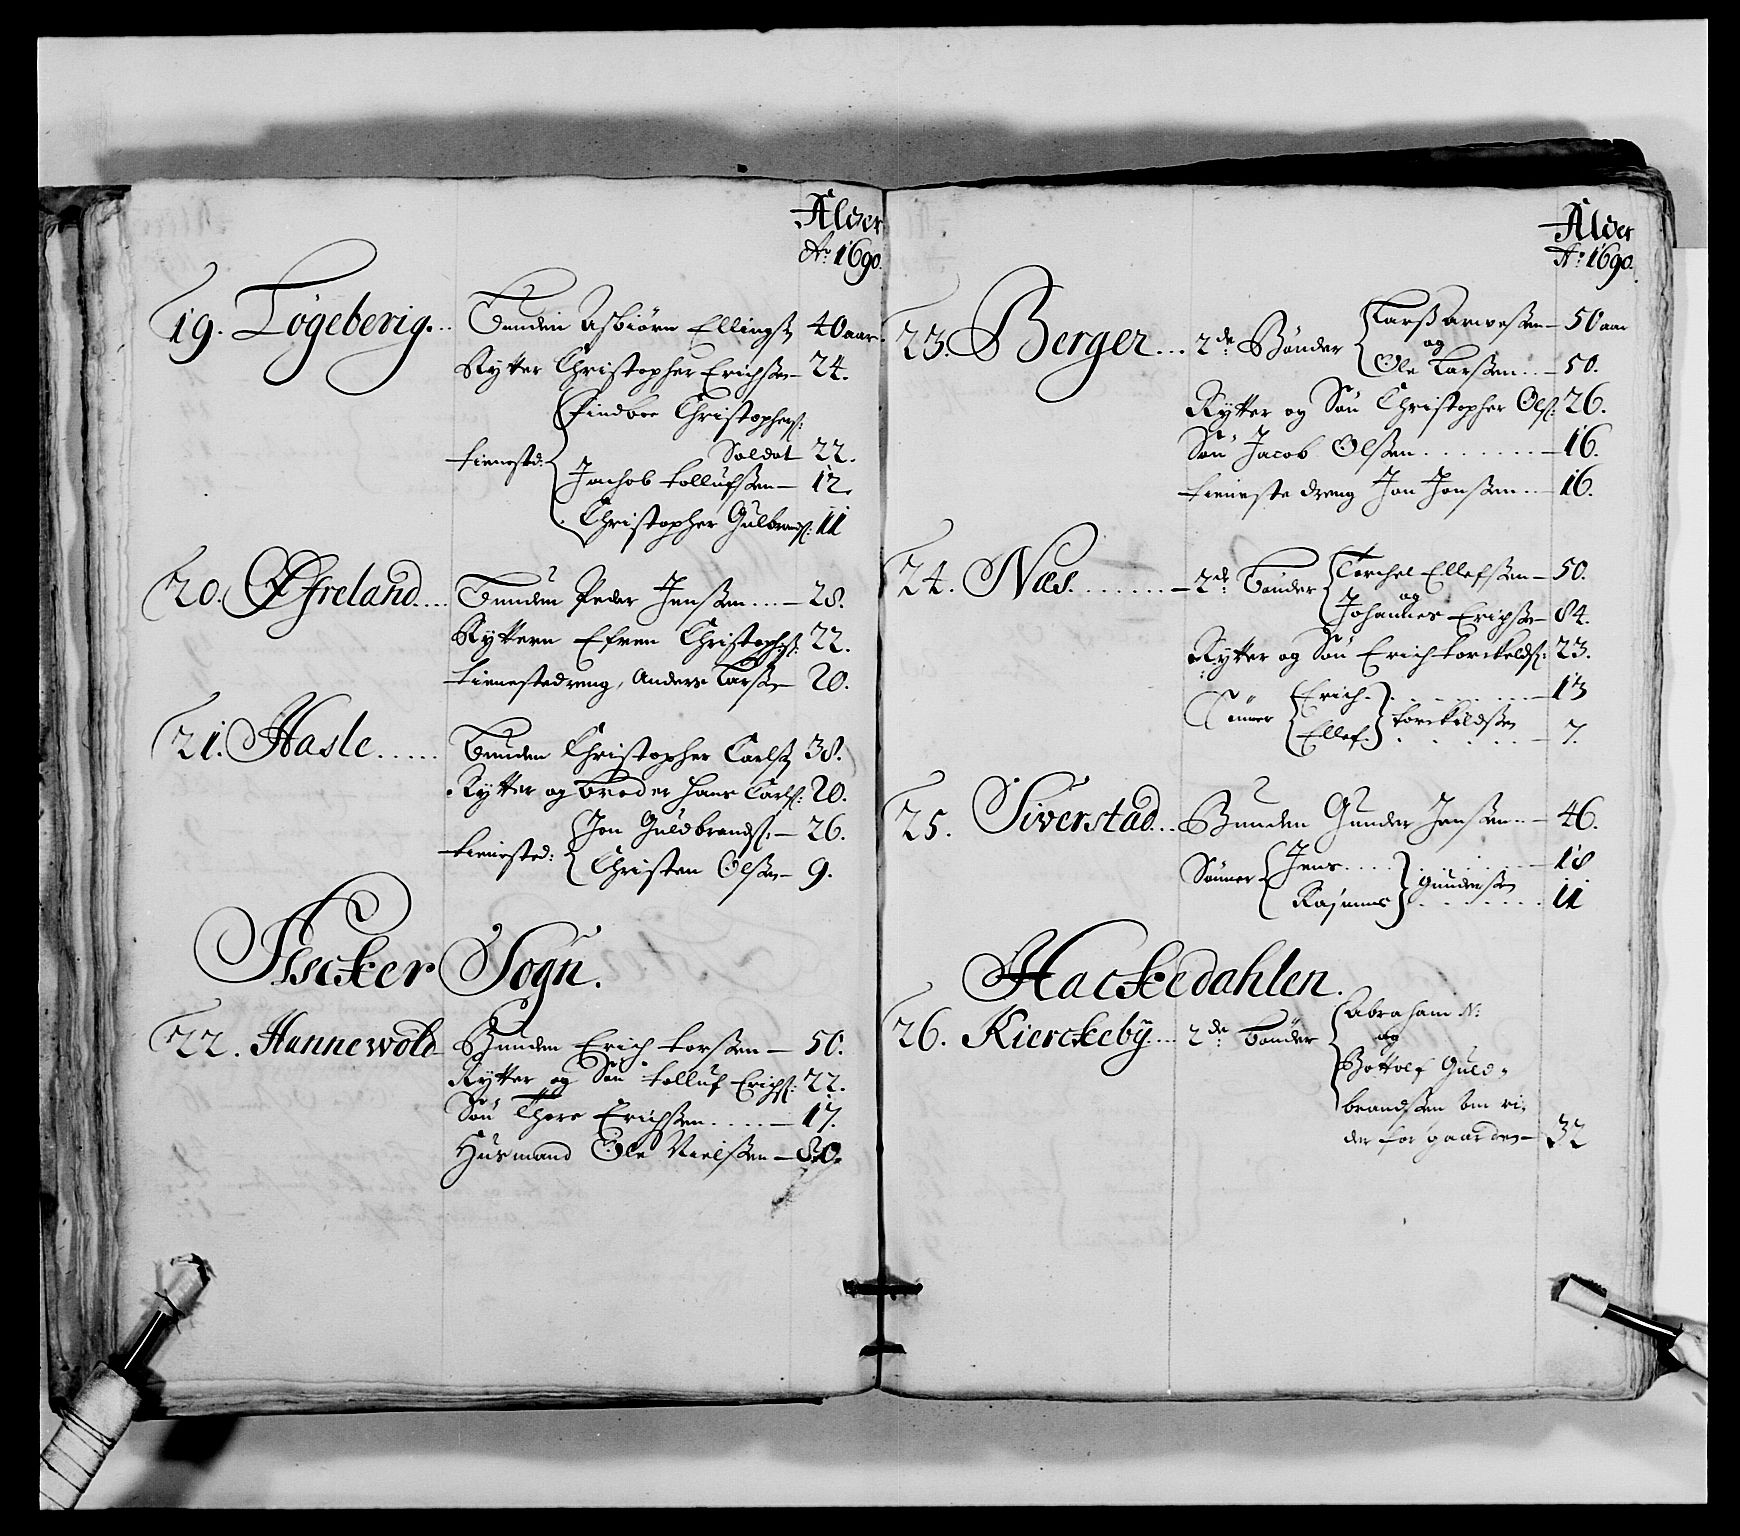 Alder
Aº 1690.
19. Tögeberig... Bunden Asbiörn Ellings. 40 aar.
Rytter Christopher Erichsen — 24.
Findboe Christophers:
Soldat 22.
tienested: Jachob tollufsen — 12.
Christopher Gulbrands: 11
20. Öfreland.... Bunden Peder Jensen ... — 28.
Ryttern Efven Christophs: 22.
tienestedreng, Anders Larsen — 20.
21. Hasle..... Bunden Christopher Carls. 38.
Rytter og broder Hans Carls: 20.
Jon Guldbrands. — 26.
tienested: Christen Olsen — 9.
Asscker Sogn.
22. Hannewold Bunden Erich torsen — 50.
Rytter og Sön tolluf Erichs: 22.
Sön Thore Erichsen.... — 17.
Husmand Ole Nielsen — 80.
Alder
Aº 1690.
23. Berger... 2de Bönder Lars Arvesen — 50 aar
og
Ole Larsen... — 50.
Rytter og Sön Christopher Ols: 26.
Sön Jacob Olsen........ — 16.
tieneste dreng Jon Jonsen... — 16.
24. Næs....... — 2de bönder Torchel Ellefsen — 50.
og
Johannes Erichsen — 84.
Rytter og Sön Erich torckelds: 23.
Sönner Erich......... — 13
torckildsen
Ellef....... — 7.
25. Siverstad... Bunden Gunder Jensen... — 46.
Sönner Jens.......... — 18
gundersen
Rasmus....... 11
Hackedahlen.
26. Kierckebÿ.... 2de bönder Abraham N:
og
Bottolf Guld-
brandsen som ri-
der for gaarden — 32